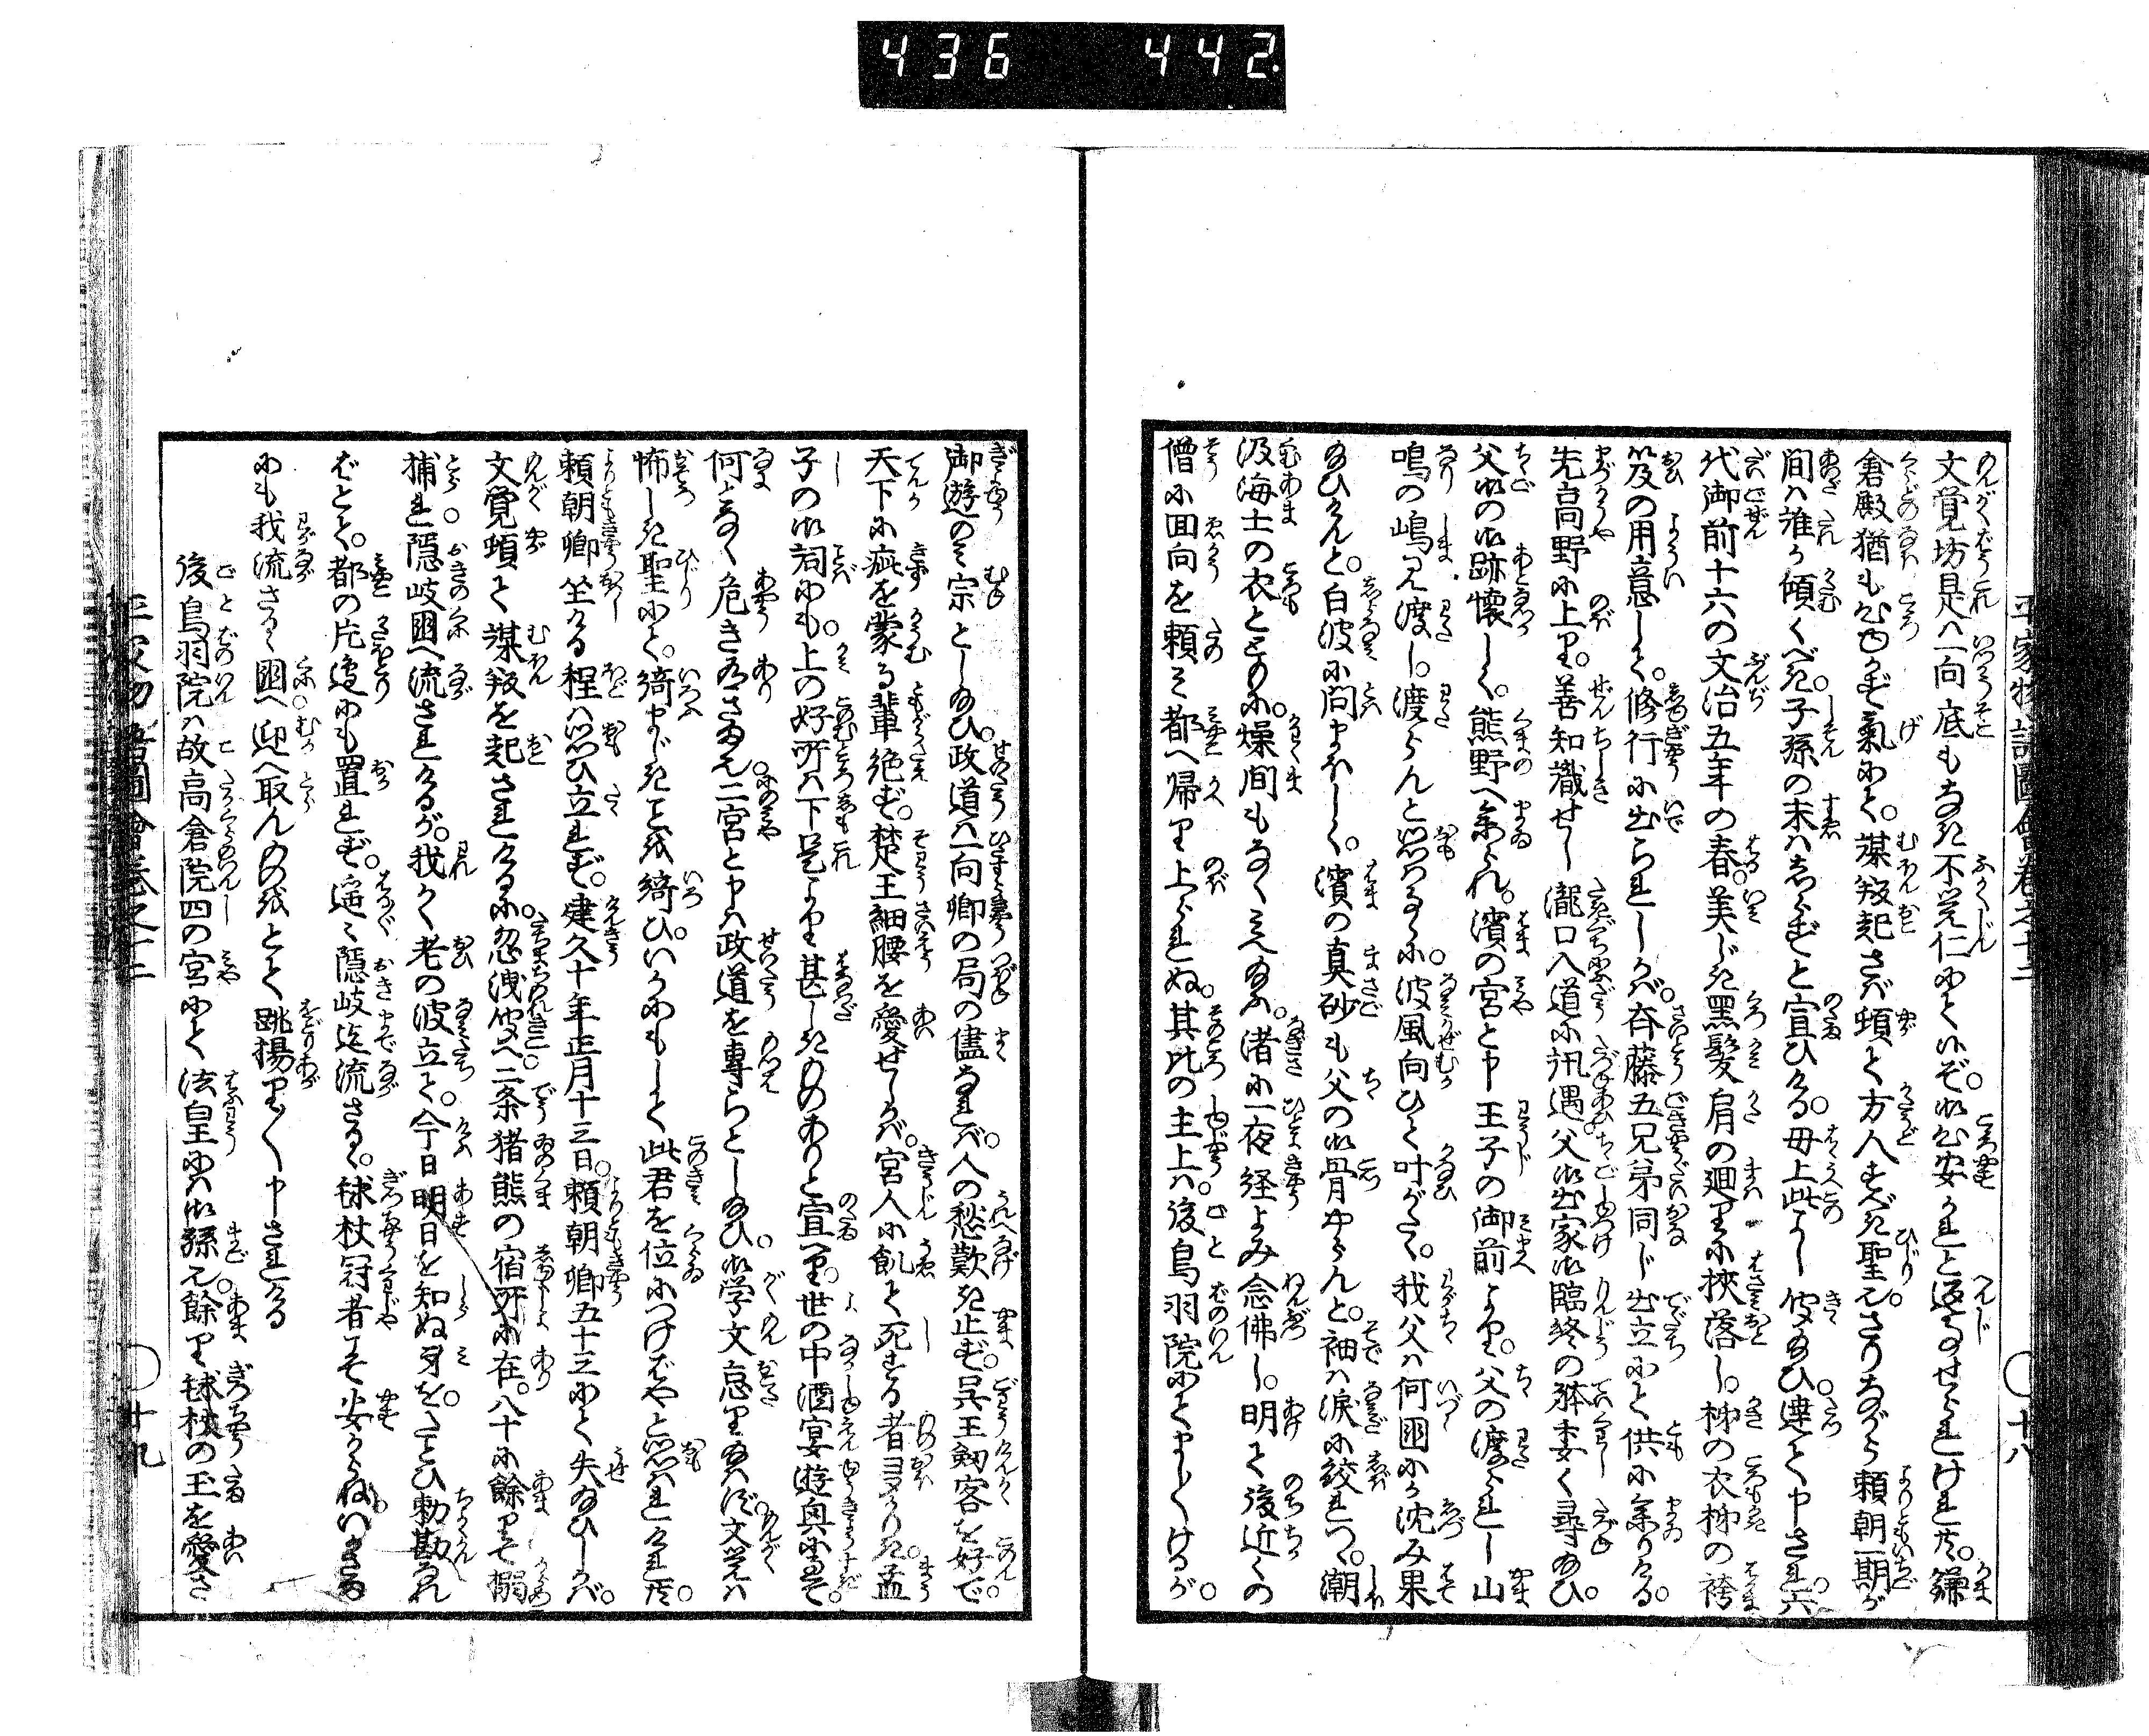 436 442.
平家物語圖會巻之十二 ○十八
文覚坊是ハ一向底もなき不覚仁にて候ぞ。御心安かれと返事せられけれ共。鎌
倉殿猶も心ゆかず氣にて。謀叛起さバ頓て方人すべき聖也。さりながら頼朝一期が
間ハ誰か傾くべき。子孫の末ハしらずと宣ひける。母上此よし聞給ひ。達て申され。六
代御前十六の文治五年の春。美しき黒髪肩の廻りに挟落し。柿の衣柿の袴
笈の用意して。修行に出られしかバ。斉藤五兄弟同じ出立にて供に参りける。
先高野に上り。善知識せし瀧口入道に汛遇。父御出家御臨終の躰委く尋給ひ。
父御の御跡懐しく。熊野へ参られ。濱の宮と申王子の御前より。父の渡られし山
鳴の嶋見渡し。渡らんと思はるゝに。波風向ひて叶がたく。我父ハ何國にか沈み果
給ひけんと。白波に問まほしく。濱の真砂も父の御骨やらんと。袖ハ涙に絞れつゝ。潮
汲海士の衣となりに。燥間もなく見へ給ふ。渚に一夜経よみ念佛し。明て後近くの
僧に回向を頼て都へ帰り上られぬ。其比の主上ハ後鳥羽院にてましけるが。
御遊のミ宗とし給ひ。政道ハ一向卿の局の儘なれバ。人の愁歎き止ず。呉王剱客を好で。
天下に疵を蒙る輩絶ず。楚王細腰を愛せしかバ。宮人に飢て死する者多かりき。孟
子の御詞にも。上の好所ハ下是より甚しきものありと宣へり。世の中酒宴遊興に過て。
何となく危き有さま也。二宮と申ハ政道を専らとし給ひ。御学文怠り給ハず。文覚ハ
怖しき聖にて。綺まじき事を綺ひ。いかにもして此君を位につけばやと思ハれけれ共。
頼朝卿坐ける程ハ思ひ立れず。建久十年正月十三日。頼朝卿五十三にて失給ひしかバ。
文覚頓て謀叛を起されけるに。忽洩聞へ。二条猪熊の宿所に在。八十に餘りて搦
捕れ。隠岐國へ流されけるが。我かく老の波立て。今日明日を知ぬ身を。たとひ勅勘なれ
ばとて。都の片邊にも置れず。遥々隠岐迄流さるゝ。毬杖冠者こそ安からね。いかさま
にも我流さるゝ國へ迎へ取んものをとて。跳揚り〱申されける
後鳥羽院ハ故高倉院四の宮にて法皇にハ御孫也。餘り毬杖の玉を愛さ
平家物語圖會巻之十二 ○十九